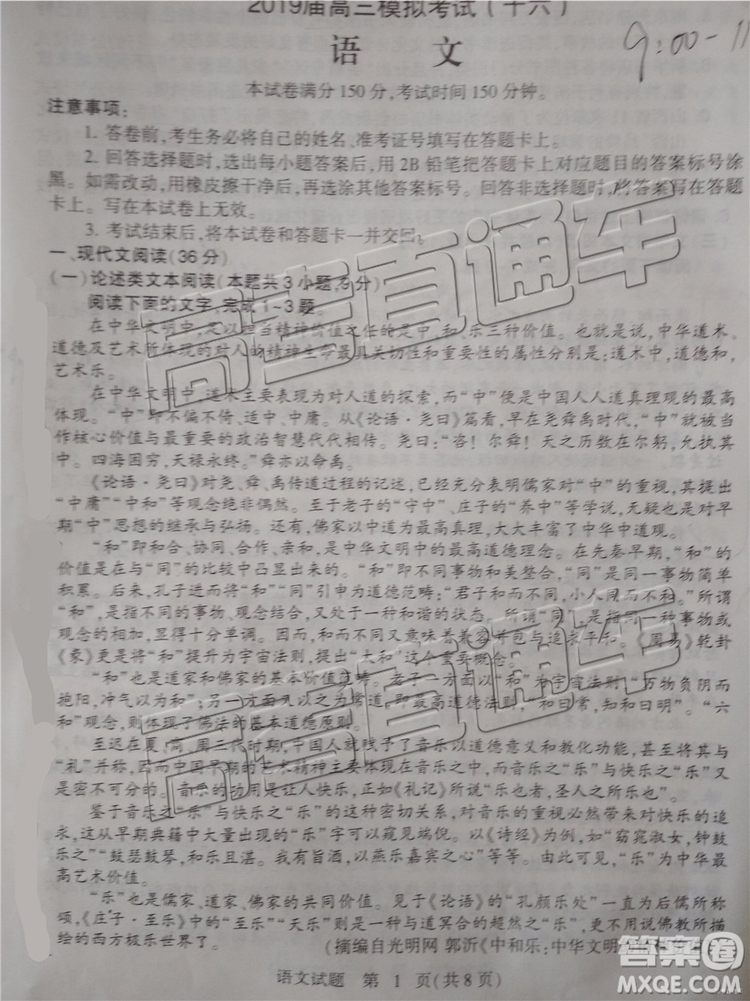 2019届高三模拟考试(十六)
语 文
9:00-11
本试卷满分150分,考试时间150分钟。
注意事项:
1. 答卷前,考生务必将自己的姓名、准考证号填写在答题卡上。
2. 回答选择题时,选出每小题答案后,用2B铅笔把答题卡上对应题目的答案标号涂
黑。如需改动,用橡皮擦干净后,再选涂其他答案标号。回答非选择题时,将答案写在答题
卡上。写在本试卷上无效。
3. 考试结束后,将本试卷和答题卡一并交回。
一、现代文阅读(36分)
(一)论述类文本阅读(本题共3小题,9分)
阅读下面的文字,完成1~3题。
在中华文明中,足以担当精神价值之任的是中、和、乐三种价值。也就是说,中华道术、
道德及艺术所体现的对人的精神生命最具关切性和重要性的属性分别是:道术中,道德和,
艺术乐。
在中华文明中,道术主要表现为对人道的探索,而“中”便是中国人人道真理观的最高
体现。“中”即不偏不倚、适中、中庸。从《论语·尧曰》篇看,早在尧舜禹时代,“中”就被当
作核心价值与最重要的政治智慧代代相传。尧曰:“咨!尔舜!天之历数在尔躬,允执其
中。四海困穷,天禄永终。”舜亦以命禹。
《论语·尧曰》对尧、舜、禹传道过程的记述,已经充分表明儒家对“中”的重视,其提出
“中庸”“中和”等观念绝非偶然。至于老子的“守中”、庄子的“养中”等学说,无疑也是对早
期“中”思想的继承与弘扬。还有,佛家以中道为最高真理,大大丰富了中华中道观。
“和”即和合、协同、合作、亲和,是中华文明中的最高道德理念。在先秦早期,“和”的
价值是在与“同”的比较中凸显出来的。“和”即不同事物和美整合,“同”是同一事物简单
积累。后来,孔子进而将“和”“同”引申为道德范畴:“君子和而不同,小人同而不和。”所谓
“和”,是指不同的事物、观念结合,又处于一种和谐的状态。所谓“同”,是指同一种事物或
观念的相加,显得十分单调。因而,和而不同又意味着兼容并包与追求平和。《周易》乾卦
《彖》更是将“和”提升为宇宙法则,提出“大和”这个重要概念。
“和”也是道家和佛家的基本价值范畴。老子一方面以“和”为宇宙法则:“万物负阴而
抱阳,冲气以为和”;另一方面又以之为常道,即最高道德法则,“和曰常,知和曰明”。“六
和”观念,则体现了佛法的基本道德原则。
至迟在夏、商、周三代时期,中国人就赋予了音乐以道德意义和教化功能,甚至将其与
“礼”并称,因而中国早期的艺术精神主要体现在音乐之中,而音乐之“乐”与快乐之“乐”又
是密不可分的。音乐的功用是让人快乐,正如《礼记》所说“乐也者,圣人之所乐也”。
鉴于音乐之“乐”与快乐之“乐”的这种密切关系,对音乐的重视必然带来对快乐的追
求,这从早期典籍中大量出现的“乐”字可以窥见端倪。以《诗经》为例,如“窈窕淑女,钟鼓
乐之”“鼓瑟鼓琴,和乐且湛。我有旨酒,以燕乐嘉宾之心”等等。由此可知,“乐”为中华最
高艺术价值。
“乐”也是儒家、道家、佛家的共同价值。见于《论语》的“孔颜乐处”一直为后儒所称
颂,《庄子·至乐》中的“至乐”“天乐”则是一种与道冥合的超然之“乐”,更不用说佛教所描
绘的西方极乐世界了。
(摘编自光明网 郭沂《中和乐:中华文明
语文试题 第 1 页(共8页)
高考直通车
高考直通车
答案圈
MXQE.COM